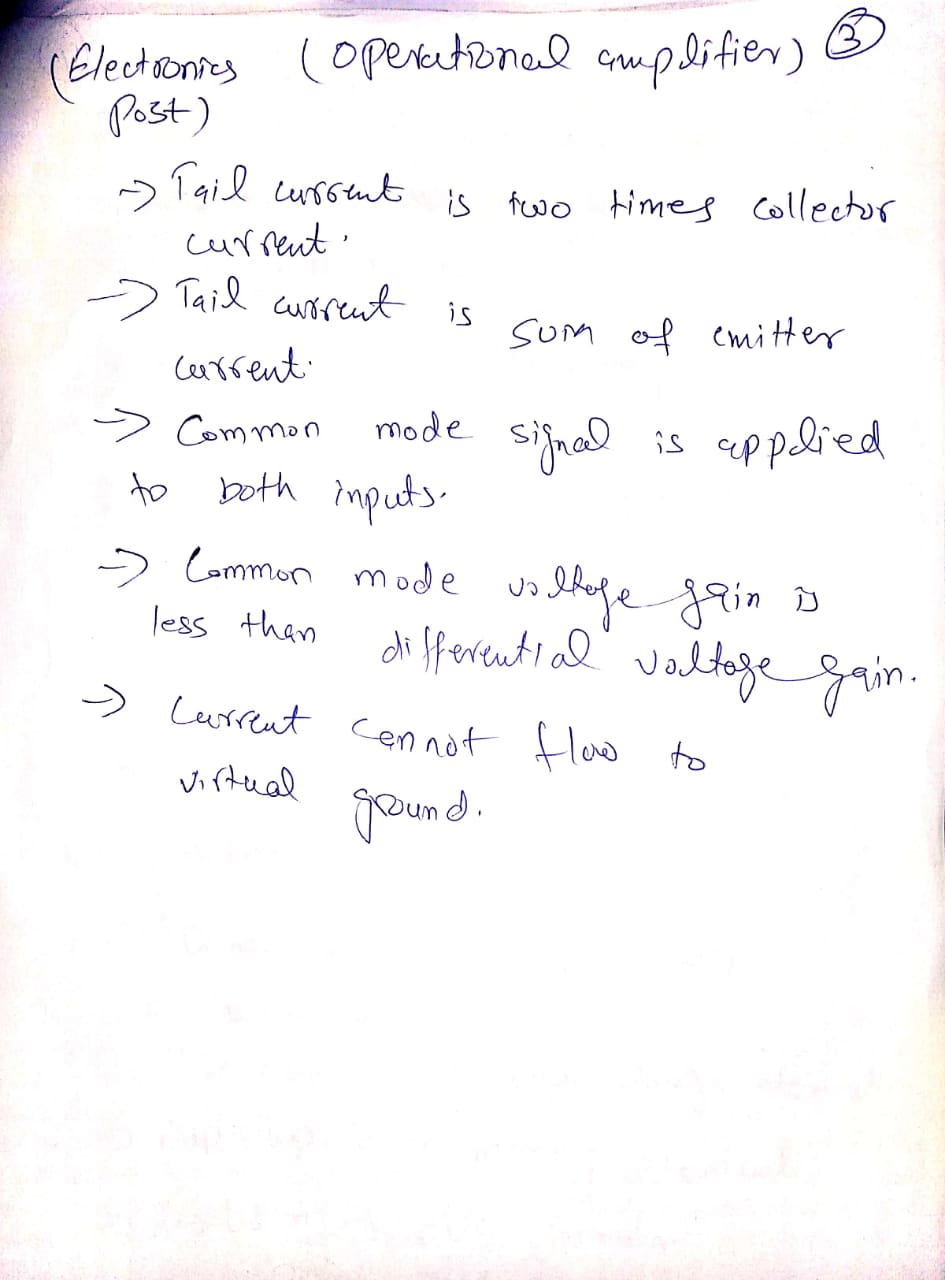 (Electronics (operational amplifier) 3
Post)
→ Tail current is two times collector
current.
→ Tail current is sum of emitter
current.
→ Common mode signal is applied
to both inputs.
→ Common mode voltage gain is
less than differential voltage gain.
→ Current cannot flow to
virtual ground.